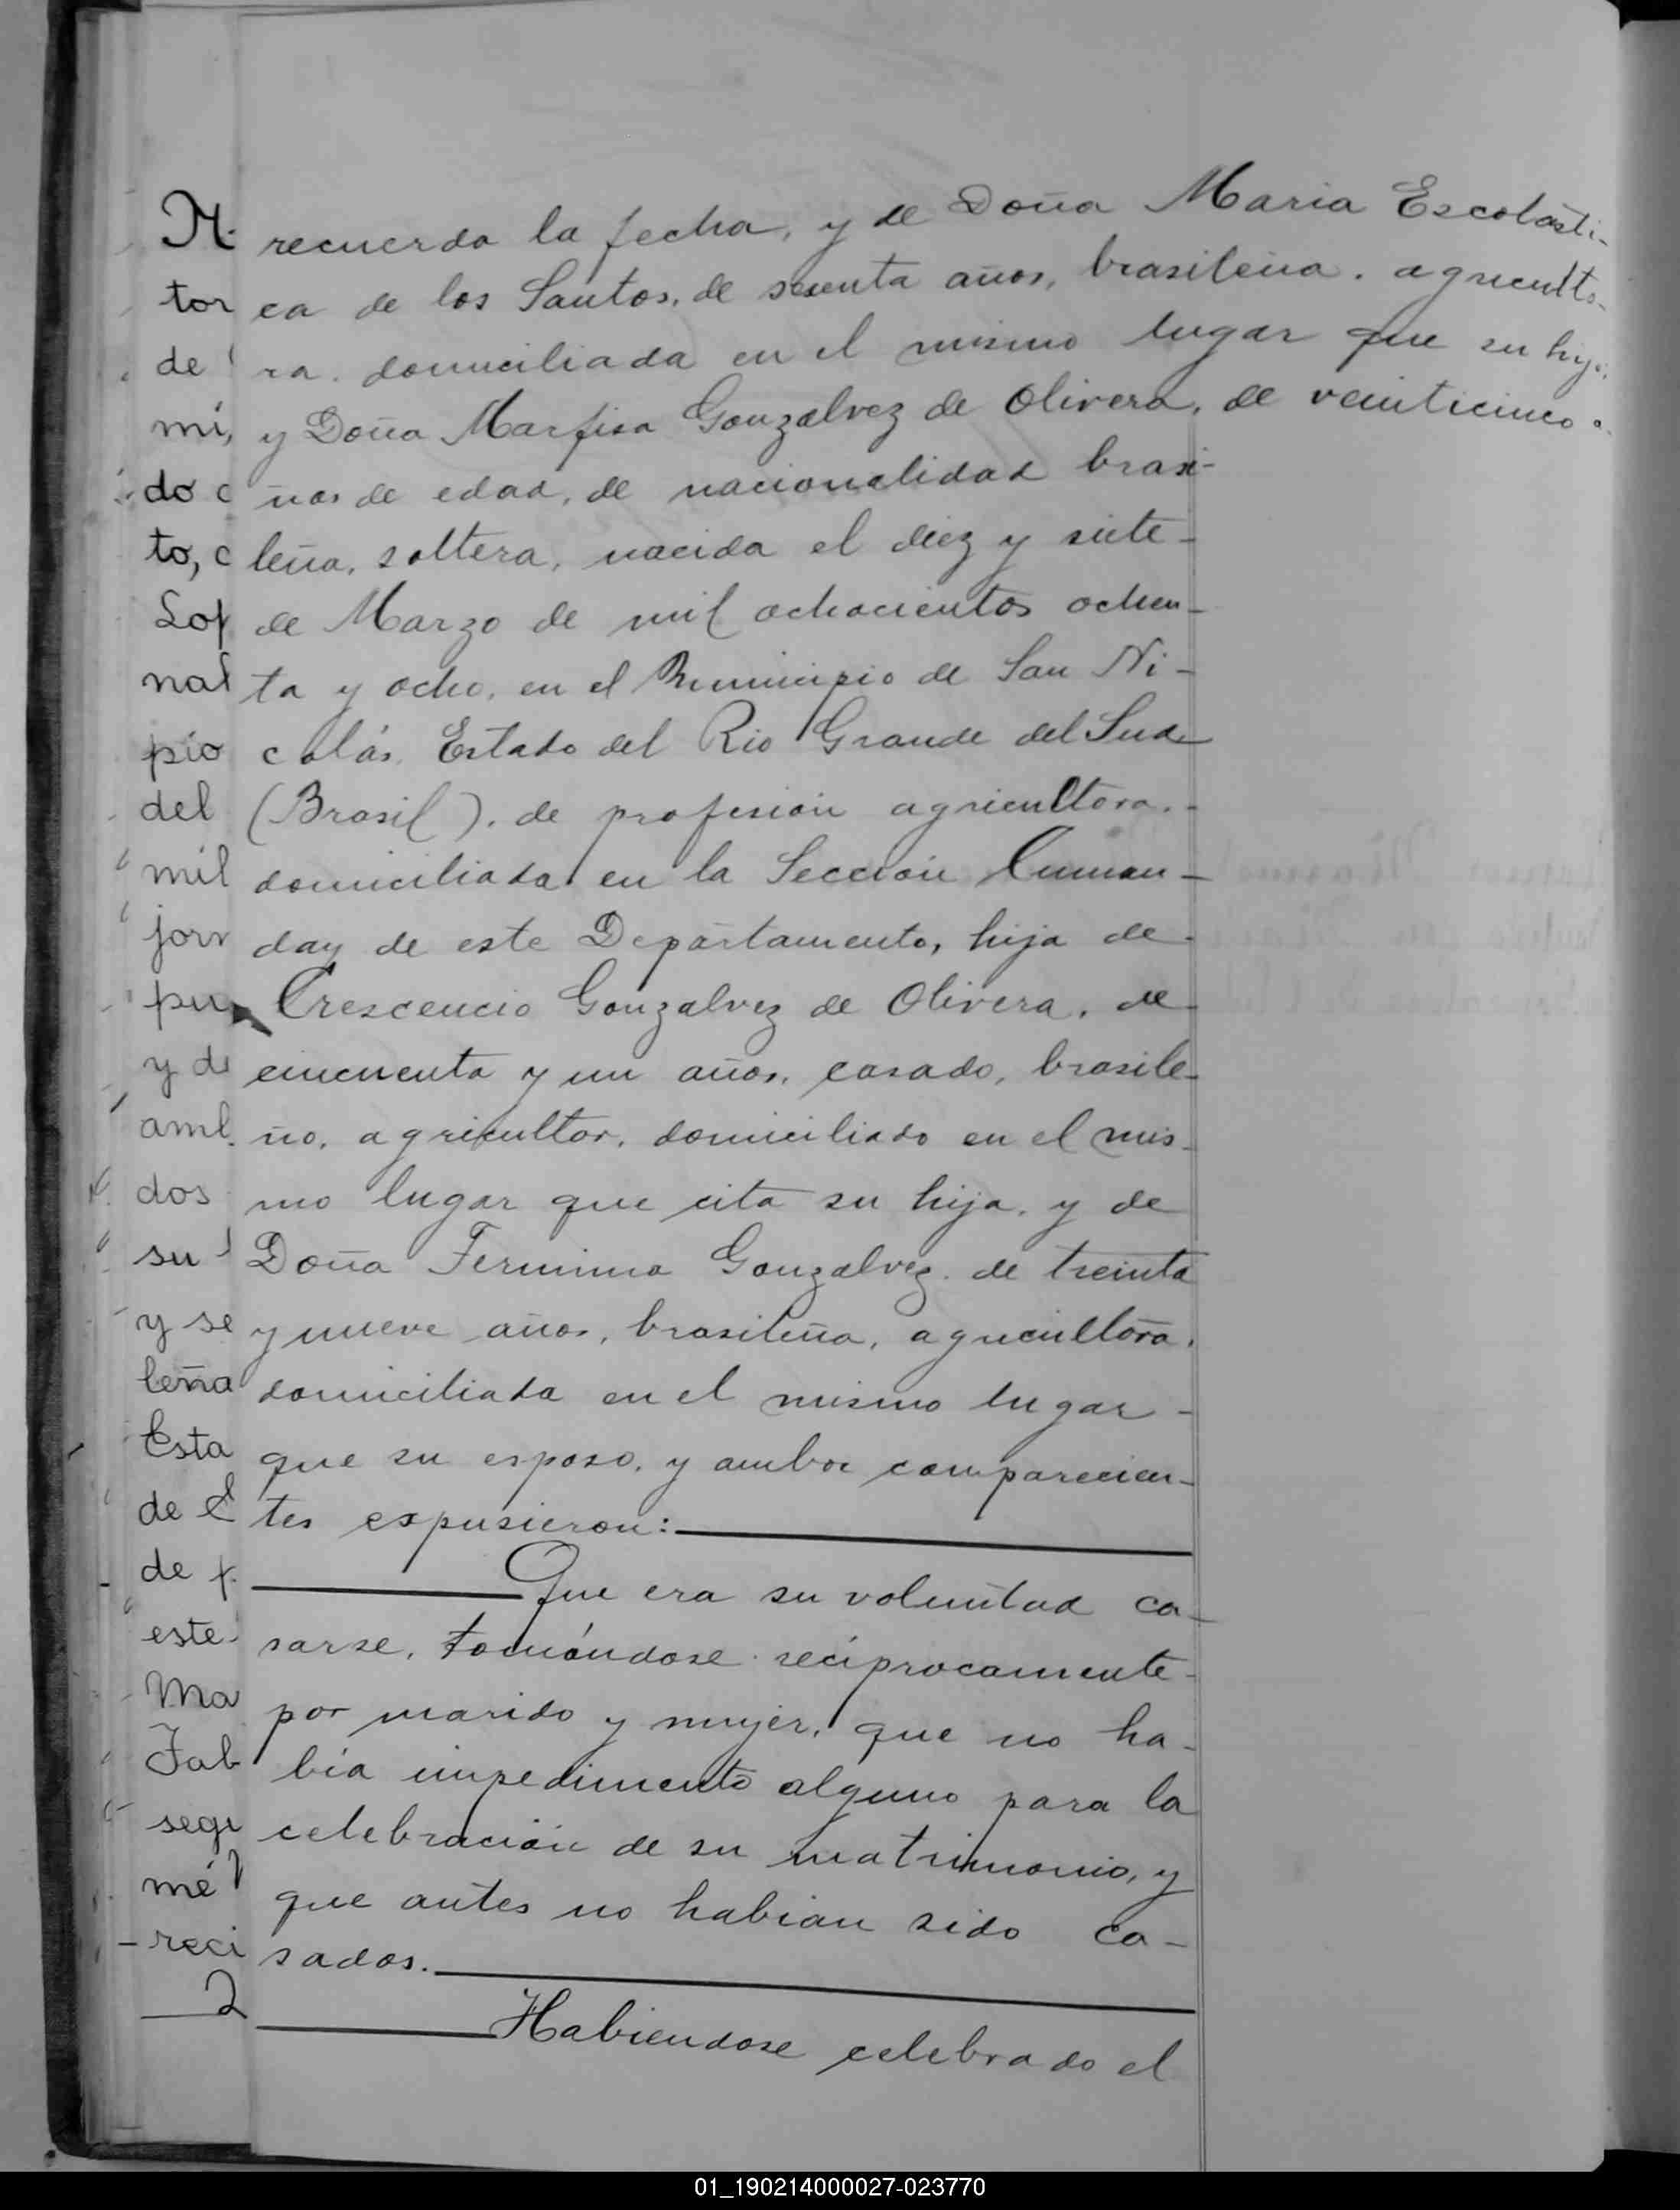 recuerda la fecha, y de Doña Maria Escolásti-
ca de los Santos, de sesenta años, brasileña, agriculto-
ra, domiciliada en el mismo lugar que su hijo;
y Doña Marfisa Gonzalvez de Olivera, de veinticinco a-
ños de edad, de nacionalidad brasi-
leña, soltera, nacida el diez y siete-
de Marzo de mil ochocientos ochen-
ta y ocho, en el Municipio de San Ni-
colás, Estado del Rio Grande del Sud
(Brasil), de profesión agricultora,-
domiciliada en la Sección Cuman-
day de este Departamento, hija de-
Crescencio Gonzalvez de Olivera, de-
cincuenta y un años, casado, brasile-
ño, agricultor, domiciliado en el mis-
mo lugar que cita su hija, y de
Doña Fermina Gonzalvez, de treinta
y nueve años, brasileña, agricultora,
domiciliada en el mismo lugar-
que su esposo, y ambos comparecien-
tes expusieron:
Que era su voluntad ca-
sarse, tomándose recíprocamente-
por marido y mujer, que no ha-
bía impedimento alguno para la
celebración de su matrimonio, y
que antes no habían sido ca-
sados.
Habiendose celebrado el
M.
tor
de
mi,
do c
to, c
Lof
nal
pio
del
mil
jorn
pu
y de
amb
dos
su
y se
leña
Esta
de E
de p
este
Ma
Fab
segu
mé
reci
01_190214000027-023770